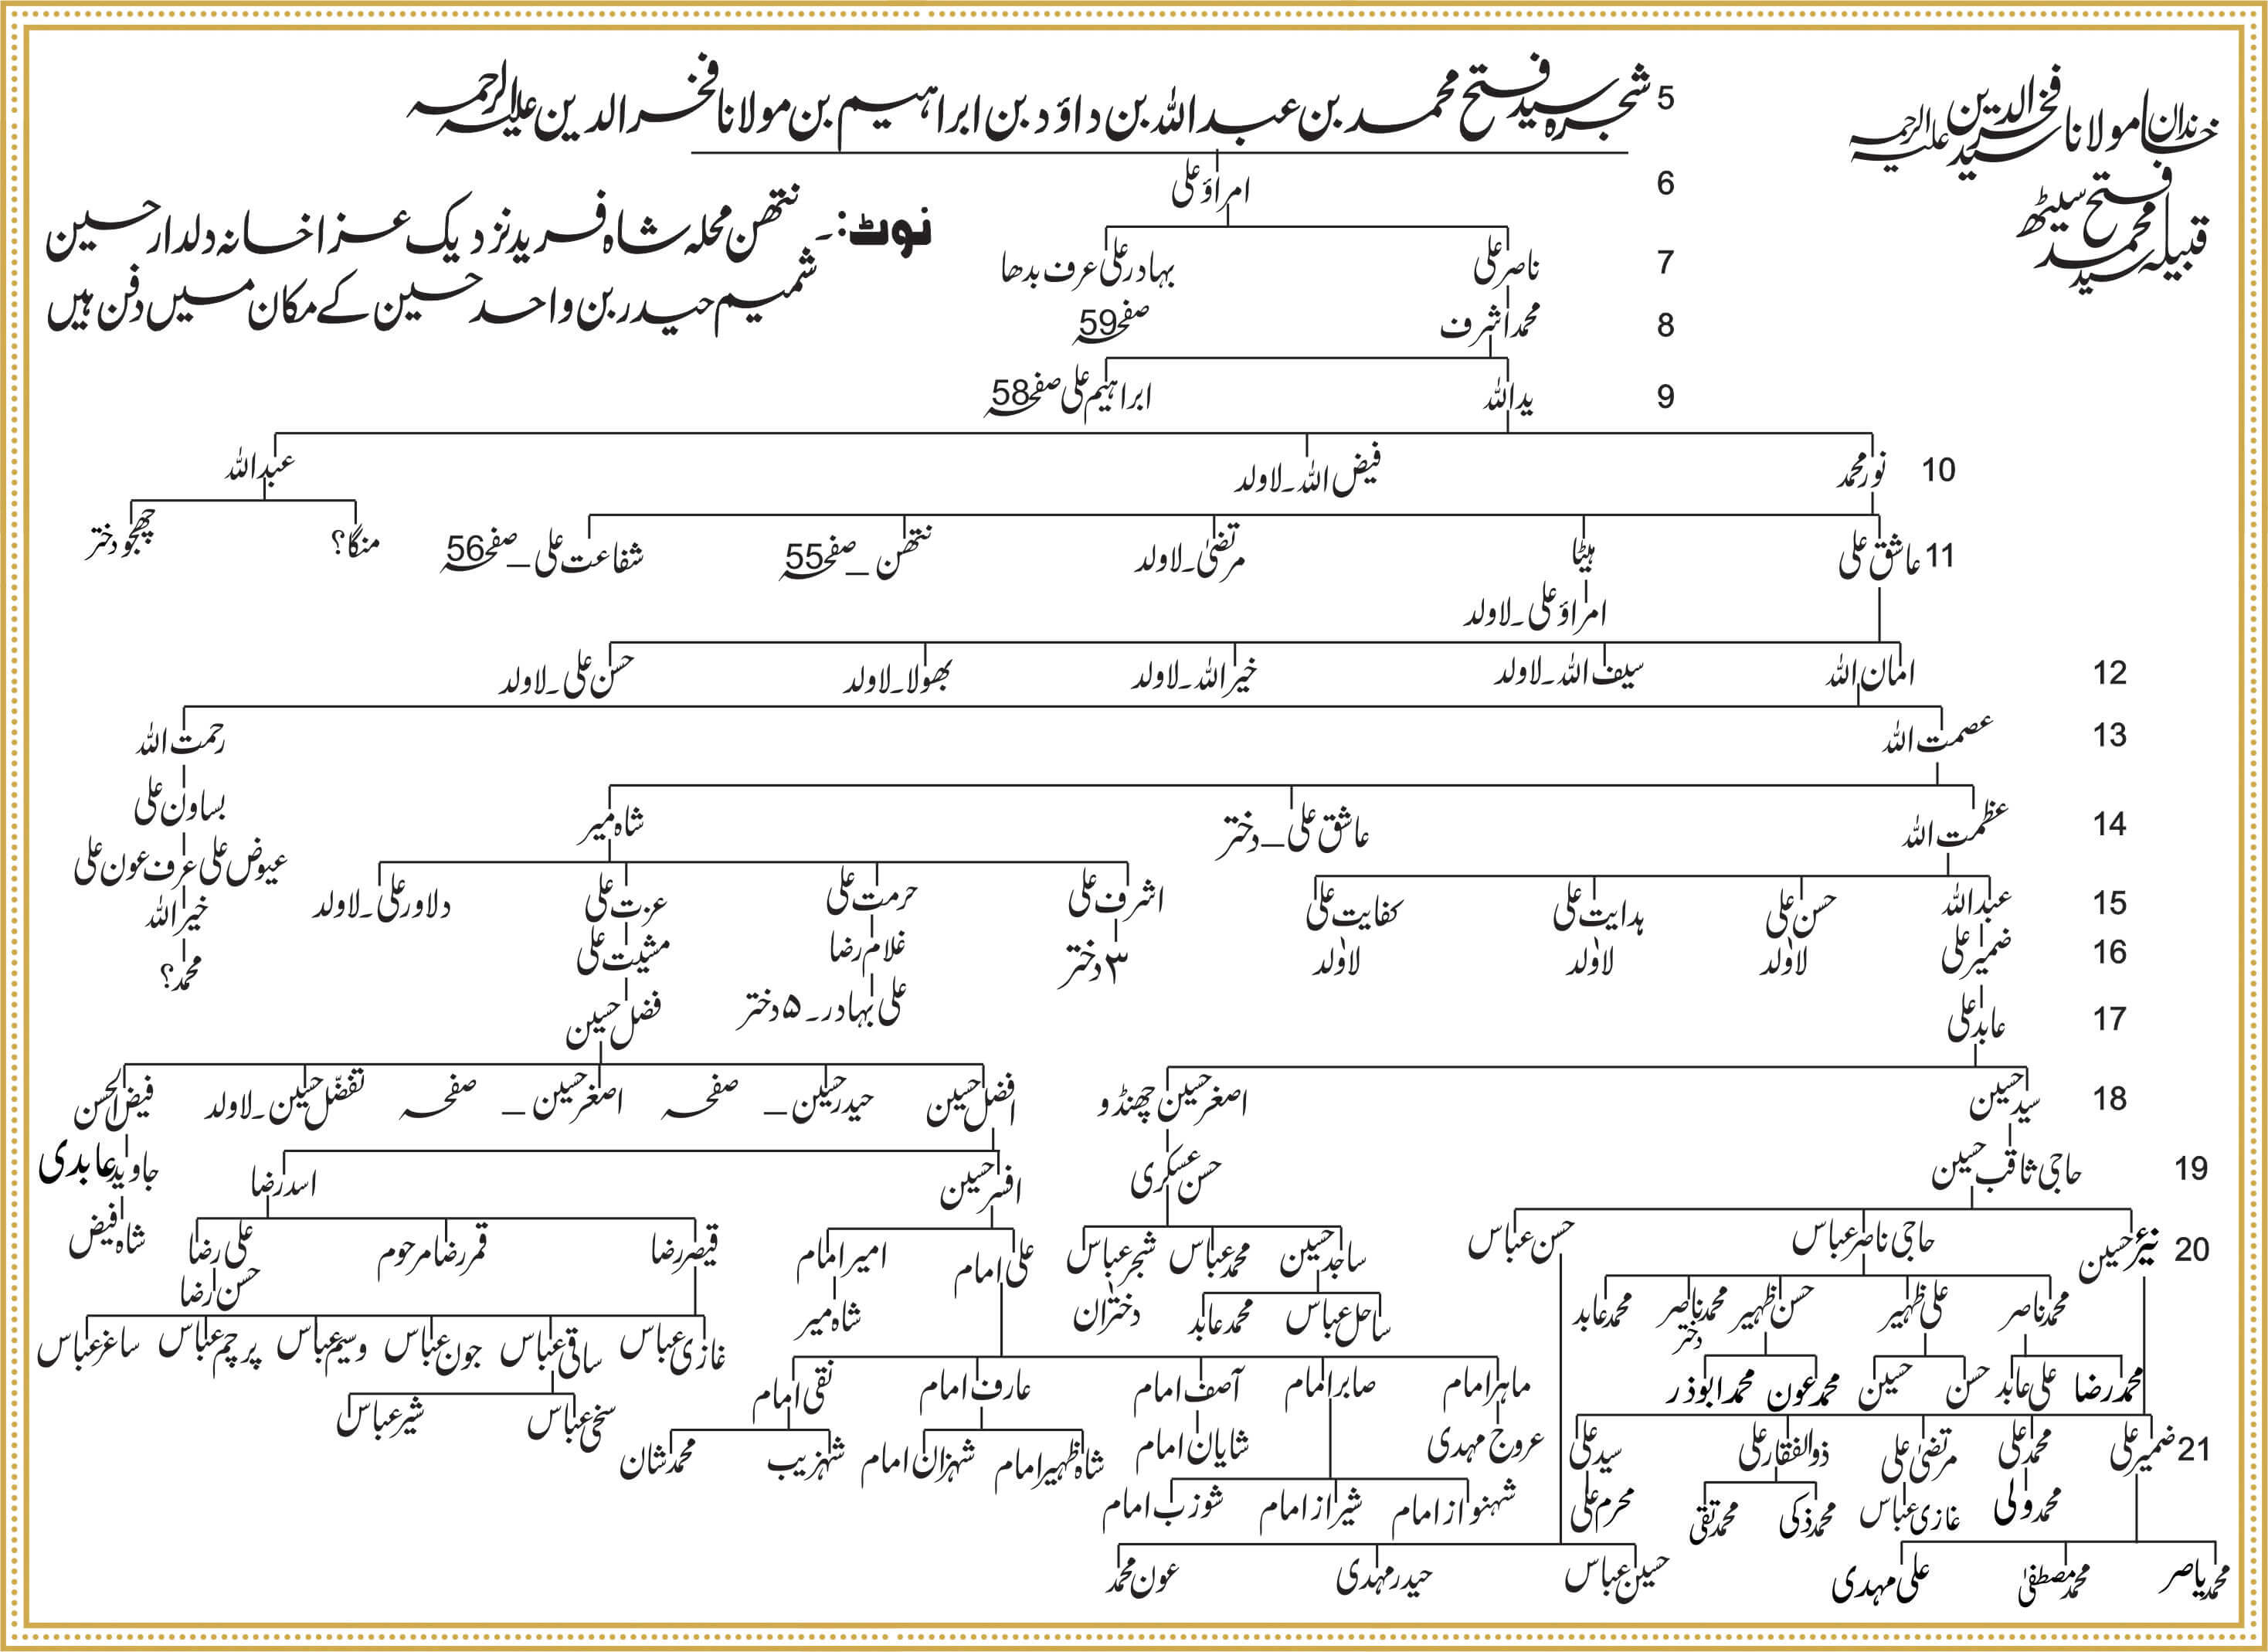 خاندان مولانا سید فخرالدین علیہ الرحمہ
قبیلہ سید محمد فتح سیٹھ
شجرہ سید فتح محمد بن عبداللہ بن داؤد بن ابراہیم بن مولانا فخرالدین علیہ الرحمہ 5
امراؤ علی 6
نوٹ:۔ نتھن محلہ شاہ فرید نزدیک عزاخانہ دلدار حسین
شمیم حیدر بن واحد حسین کے مکان میں دفن ہیں
ناصر علی بہادر علی عرف بدھا 7
محمد اشرف صفحہ 59 8
ید اللہ ابراہیم علی صفحہ 58 9
10 نور محمد فیض اللہ۔لاولد عبداللہ
11 عاشق علی ہیٹا مرتضیٰ۔لاولد نتھن _ صفحہ 55 شفاعت علی _ صفحہ 56 منگا؟ چھجو دختر
امراؤ علی۔لاولد
12 امان اللہ سیف اللہ۔لاولد خیر اللہ۔لاولد بھولا۔لاولد حسن علی۔لاولد
13 عصمت اللہ رحمت اللہ
بساون علی
14 عظمت اللہ عاشق علی _ دختر شاہ میر
عیوض علی عرف عون علی
15 عبداللہ حسن علی ہدایت علی کفایت علی اشرف علی حرمت علی عزت علی دلاور علی۔لاولد خیر اللہ
16 ضمیر علی لاولد لاولد لاولد ۳ دختر غلام رضا مشیت علی محمد؟
17 عابد علی علی بہادر۔ ۵ دختر فضل حسین
18 سید حسین اصغر حسین چھنڈو افضل حسین حیدر حسین _ صفحہ اصغر حسین _ صفحہ تفضّل حسین۔لاولد فیض الحسن
19 حاجی ثاقب حسین حسن عسکری افسر حسین اسد رضا جاوید عابدی
20 نیر حسین حاجی ناصر عباس حسن عباس ساجد حسین محمد عباس شجر عباس علی امام امیر امام قیصر رضا قمر رضا مرحوم علی رضا شاہ فیض
حسن رضا
محمد ناصر علی ظہیر حسن ظہیر محمد ناصر محمد عابد ساحل عباس محمد عابد دختران شاہ میر
دختر
غازی عباس ساقی عباس جون عباس وسیم عباس پرچم عباس ساغر عباس
محمد رضا علی عابد حسن حسین محمد عون محمد ابوذر ماہر امام صابر امام آصف امام عارف امام نقی امام سخی عباس شیر عباس
21 ضمیر علی محمد علی مرتضیٰ علی ذوالفقار علی سید علی عروج مہدی شایان امام شاہ ظہیر امام شہزان امام شہزیب محمد شان
محمد ولی غازی عباس محمد ذکی محمد تقی محرم علی شہنواز امام شیراز امام شوزب امام
محمد یاسر محمد مصطفیٰ علی مہدی حسین عباس حیدر مہدی عون محمد